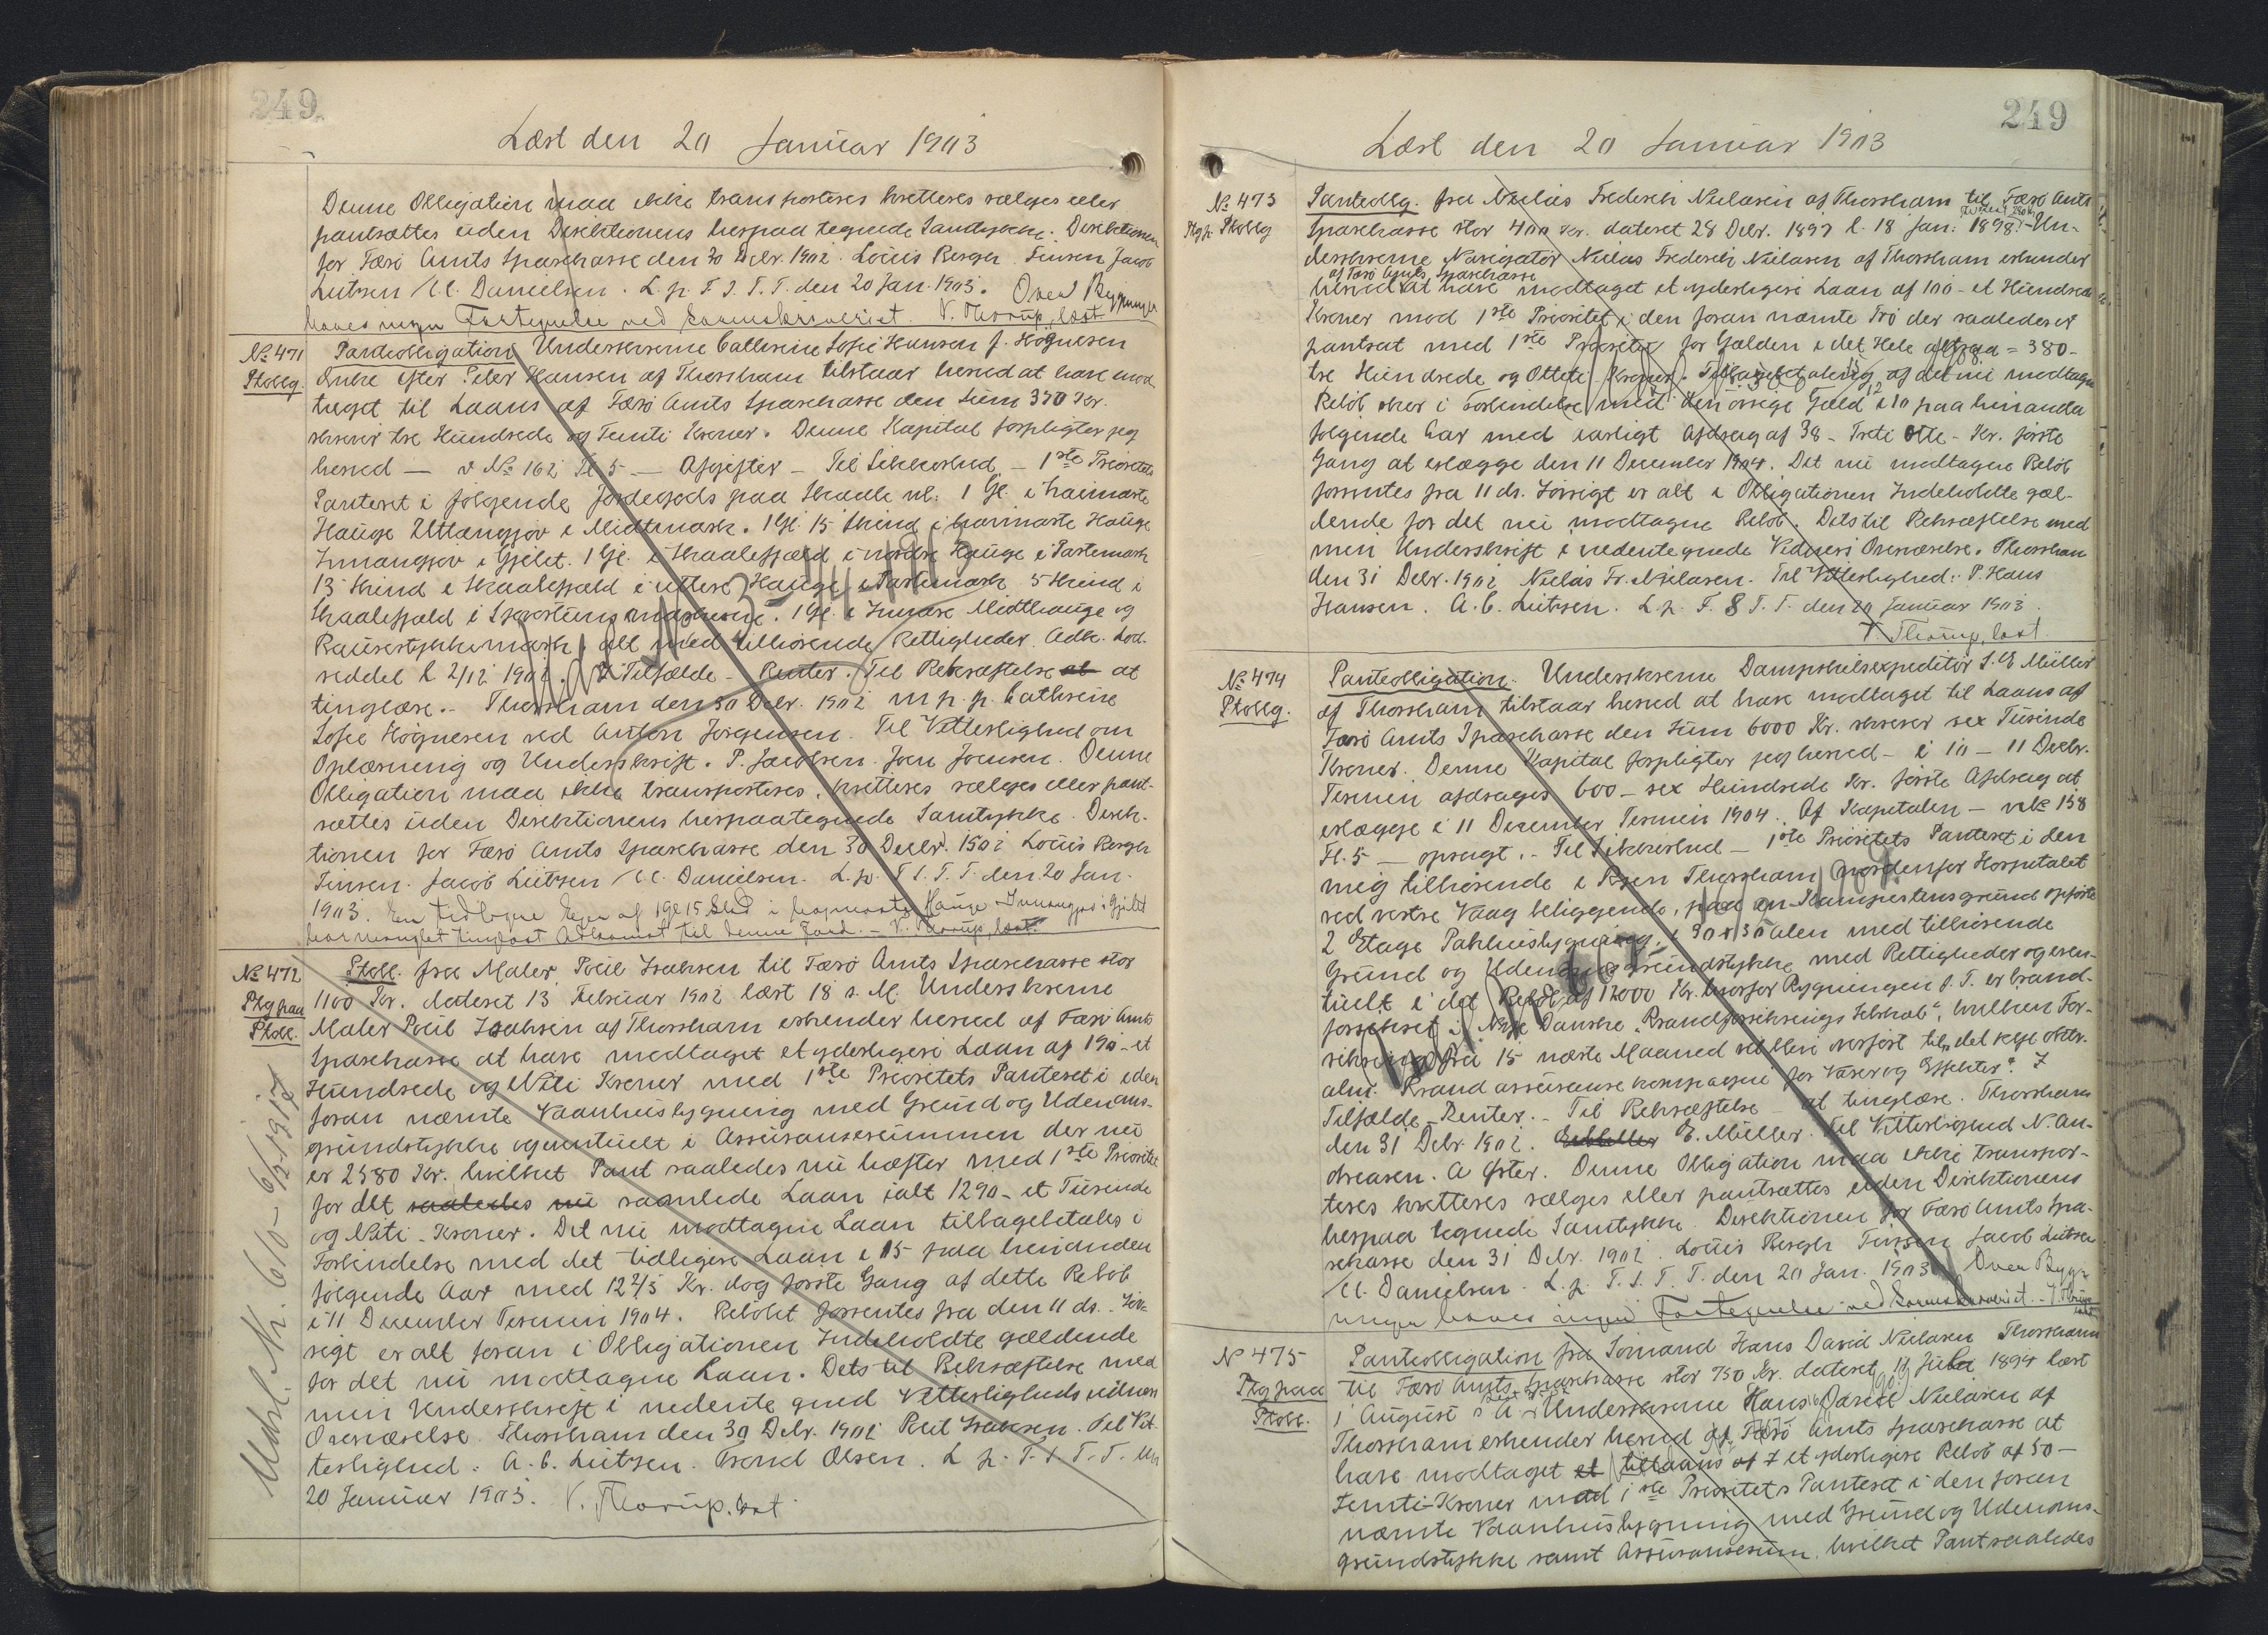 249
Læst den 20 Januar 1903
Denne Obligation maa ikke transporteres kvitteres sælges eller
pantsættes uden Direktionens herpaa tegnede Samtykke. Direktionen
for Færø Amts Sparekasse den 30 Decbr. 1902. Louis Bergh. Jensen Jacob
Lützen / C. Danielsen. L. p. F. S. T. T. den 20 Jan. 1903. Over Bygningen
haves ingen Fortegnelse ved Sorenskriveriet V. Thorup, cst
No. 471
Ptoblg.
Pantobligation Underskrevne Cathrine Sofie Hansen f. Høgnesen
Enke efter Peter Hansen af Thorshavn tilstaar herved at have mod-
taget til Laans af Færø Amts Sparekasse den Sum 350 Kr.
skriver tre Hundrede og Femti Kroner. Denne Kapital forpligter jeg
herved — v No. 162 Fl 5 — Afgifter – Til Sikkerhed – 1ste Prioritets
Panteret i følgende Jordegods paa Skaale nl: 1 Gl. i
Hauge Uttangjov i Midtmark. 1 Gl. 15 Skind i Hauge
Innangjov i Gjilet. 1 Gl. i Skaalefjæld i nordre Hauge i Partemark
13 Skind i Skaalefjæld i uttere Hauge i Partemark 5 Skind i
Skaalefjæld i 1 Gl. i Indre Midthauge og
alt med tilhørende Rettigheder Adk. Lod-
seddel l 2/12 1902. I Tilfælde – Renter. Til Bekræftelse at at
tinglæse. – Thorshavn den 30 Decbr. 1902 m. p. p. Cathrine
Sofie Høgnesen ved Anton Jørgensen. Til Vitterlighed om
Oplæsning og Underskrift. P. Jacobsen. Joen Joensen. Denne
Obligation maa ikke transporteres, kvitteres sælges eller pant-
sættes uden Direktionens herpaategnede Samtykke. Direk-
tionen for Færø Amts Sparekasse den 30 Decbr. 1902 Louis Bergh
Jensen. Jacob Lützen / C. Danielsen. L. p. F. S. T. T. den 20 Jan.
1903. En tidligere Ejer af 1 Gl 15 Skd i Hauge Innangjov i Gjilet
har manglet tinglæst Adkomst til denne Jord. – V. Thorup, cst.
No. 472
Ptg paa
Ptobl.
Ptobl. fra Maler Poul Isaksen til Færø Amts Sparekasse stor
1100 Kr. dateret 13 Februar 1902 læst 18 s. M. Underskrevne
Maler Poul Isaksen af Thorshavn erkender herved af Færø Amts
Sparekasse at have modtaget et yderligere Laan af 190 – et
Hundrede og Niti Kroner med 1ste Prioritets Panteret i den
foran nævnte Vaanhusbygning med Grund og Udenoms-
grundstykke eventuelt i Assuransesummen der nu
er 2580 Kr. hvilket Pant saaledes nu hæfter med 1ste Prioritet
for det saaledes nu samlede Laan ialt 1290 – et Tusende
og Niti – Kroner. Det nu modtagne Laan tilbagebetales i
Forbindelse med det tidligere Laan i 15 paa hinanden
følgende Aar med 12 2/3 Kr. dog første Gang af dette Beløb
i 11 December Termin 1904. Beløbet forrentes fra den 11 ds. Iøv-
rigt er alt foran i Obligationen Indeholdte gældende
for det nu modtagne Laan. Dets til Bekræftelse med
min Underskrift i nedentegnede Vitterligheds vidners
Overværelse. Thorshavn den 30 Decbr. 1902 Poul Isaksen. Til Vit-
terlighed: A. C. Lützen. Trond Olsen. L p. F. S T. T. den
20 Januar 1903. V. Thorup, cst
Udsl. Nr. 610 – 6/12 1917
249
Læst den 20 Januar 1903
No. 473
Ptg p. Ptoblg
Pantoblg. fra Nielas Frederik Nielasen af Thorshavn til Færø Amts
Sparekasse stor 400 Kr. dateret 28 Decbr. 1897 l. 18 Jan. 1898. – Un-
derskrevne Navigatør Nielas Frederik Nielasen af Thorshavn erkender
af Færø Amts Sparekasse
herved at have modtaget et yderligere Laan af 100 – et Hundrede
Kroner mod 1ste Prioritet i den foran nævnte der saaledes er
pantsat med 1ste Prioritet for Gælden i det Hele altsaa = 380 –
tre Hundrede og Otteti Kroner. Tilbagebetaling af det nu modtagne
Beløb sker i Forbindelse med den øvrige Gæld i 10 paa hinanden
følgende Aar med aarligt Afdrag af 38 – Treti Otte – Kr. første
Gang at erlægge den 11 December 1904. Det nu modtagne Beløb
forrentes fra 11 ds. Iøvrigt er alt i Obligationen Indeholdte gæl-
dende for det nu modtagne Beløb. Dets til Bekræftelse med
min Underskrift i nedentegnede Vidners Overværelse. Thorshavn
den 31 Decbr. 1902 Nielas Fr. Nielasen. Til Vitterlighed: P. Hans
Hansen. A. C. Lützen. L. p. F. S T. T. den 20 Januar 1903.
V. Thorup, cst.
No. 474
Ptoblg.
Pantobligation. Underskrevne Dampskibsexpeditør S. E Müller
af Thorshavn tilstaar herved at have modtaget til Laans af
Færø Amts Sparekasse den Sum 6000 Kr. skriver sex Tusinde
Kroner. Denne Kapital forpligter jeg herved – i 10 – 11 Decbr.
Termin afdrages 600 – sex Hundrede Kr. første Afdrag at
erlægge i 11 December Termin 1904. Af Kapitalen – v No 158
Fl. 5 – opsagt. – Til Sikkerhed – 1ste Prioritets Panteret i den
mig tilhørende i Byen Thorshavn nordenfor Hospitalet
ved vestre Vaag beliggende, paa en Kampestensgrund opførte
2 Etage Pakhusbygning, i 30 x 30 Alen med tilhørende
Grund og Udenomsgrundstykke med Rettigheder og even-
tuelt i det Beløb af 12000 Kr. hvorfor Bygningen p. T. er brand-
forsikret i Nye Danske Brandforsikrings Selskab", hvilken For-
sikring fra 15 næste Maaned vil blive overført til „det kgl oktr.
alm. Brandassurance kompagni for Varer og Effekter". I
Tilfælde – Renter. – Til Bekræftelse – at tinglæse. Thorshavn
den 31 Decbr 1902. E. Müller. Til Vitterlighed N. An-
dreasen. A Øster. Denne Obligation maa ikke transpor-
teres kvitteres sælges eller pantsættes uden Direktionens
herpaa tegnede Samtykke. Direktionen for Færø Amts Spa-
rekasse den 31 Decbr. 1902. Louis Bergh Jensen Jacob Lützen
/ C. Danielsen. L. p. F. S. T. T. den 20 Jan. 1903 Over Byg-
ningen haves ingen Fortegnelse ved Sorenskriveriet. – V. Thorup
cst
No 475
Ptg paa
Ptobl.
Pantobligation fra Sømand Hans David Nielasen Thorshavn
til Færø Amts Sparekasse stor 750 Kr. dateret 11 Juli 1894 læst
1 August s A – Underskrevne Hans David Nielasen af
Thorshavn erkender herved af Færø Amts Sparekasse at
have modtaget et yderligere Beløb af 50 –
Femti – Kroner mod 1ste Prioritets Panteret i den foran
nævnte Vaanhusbygning med Grund og Udenoms-
grundstykke samt Assuransesum, hvilket Pant saaledes